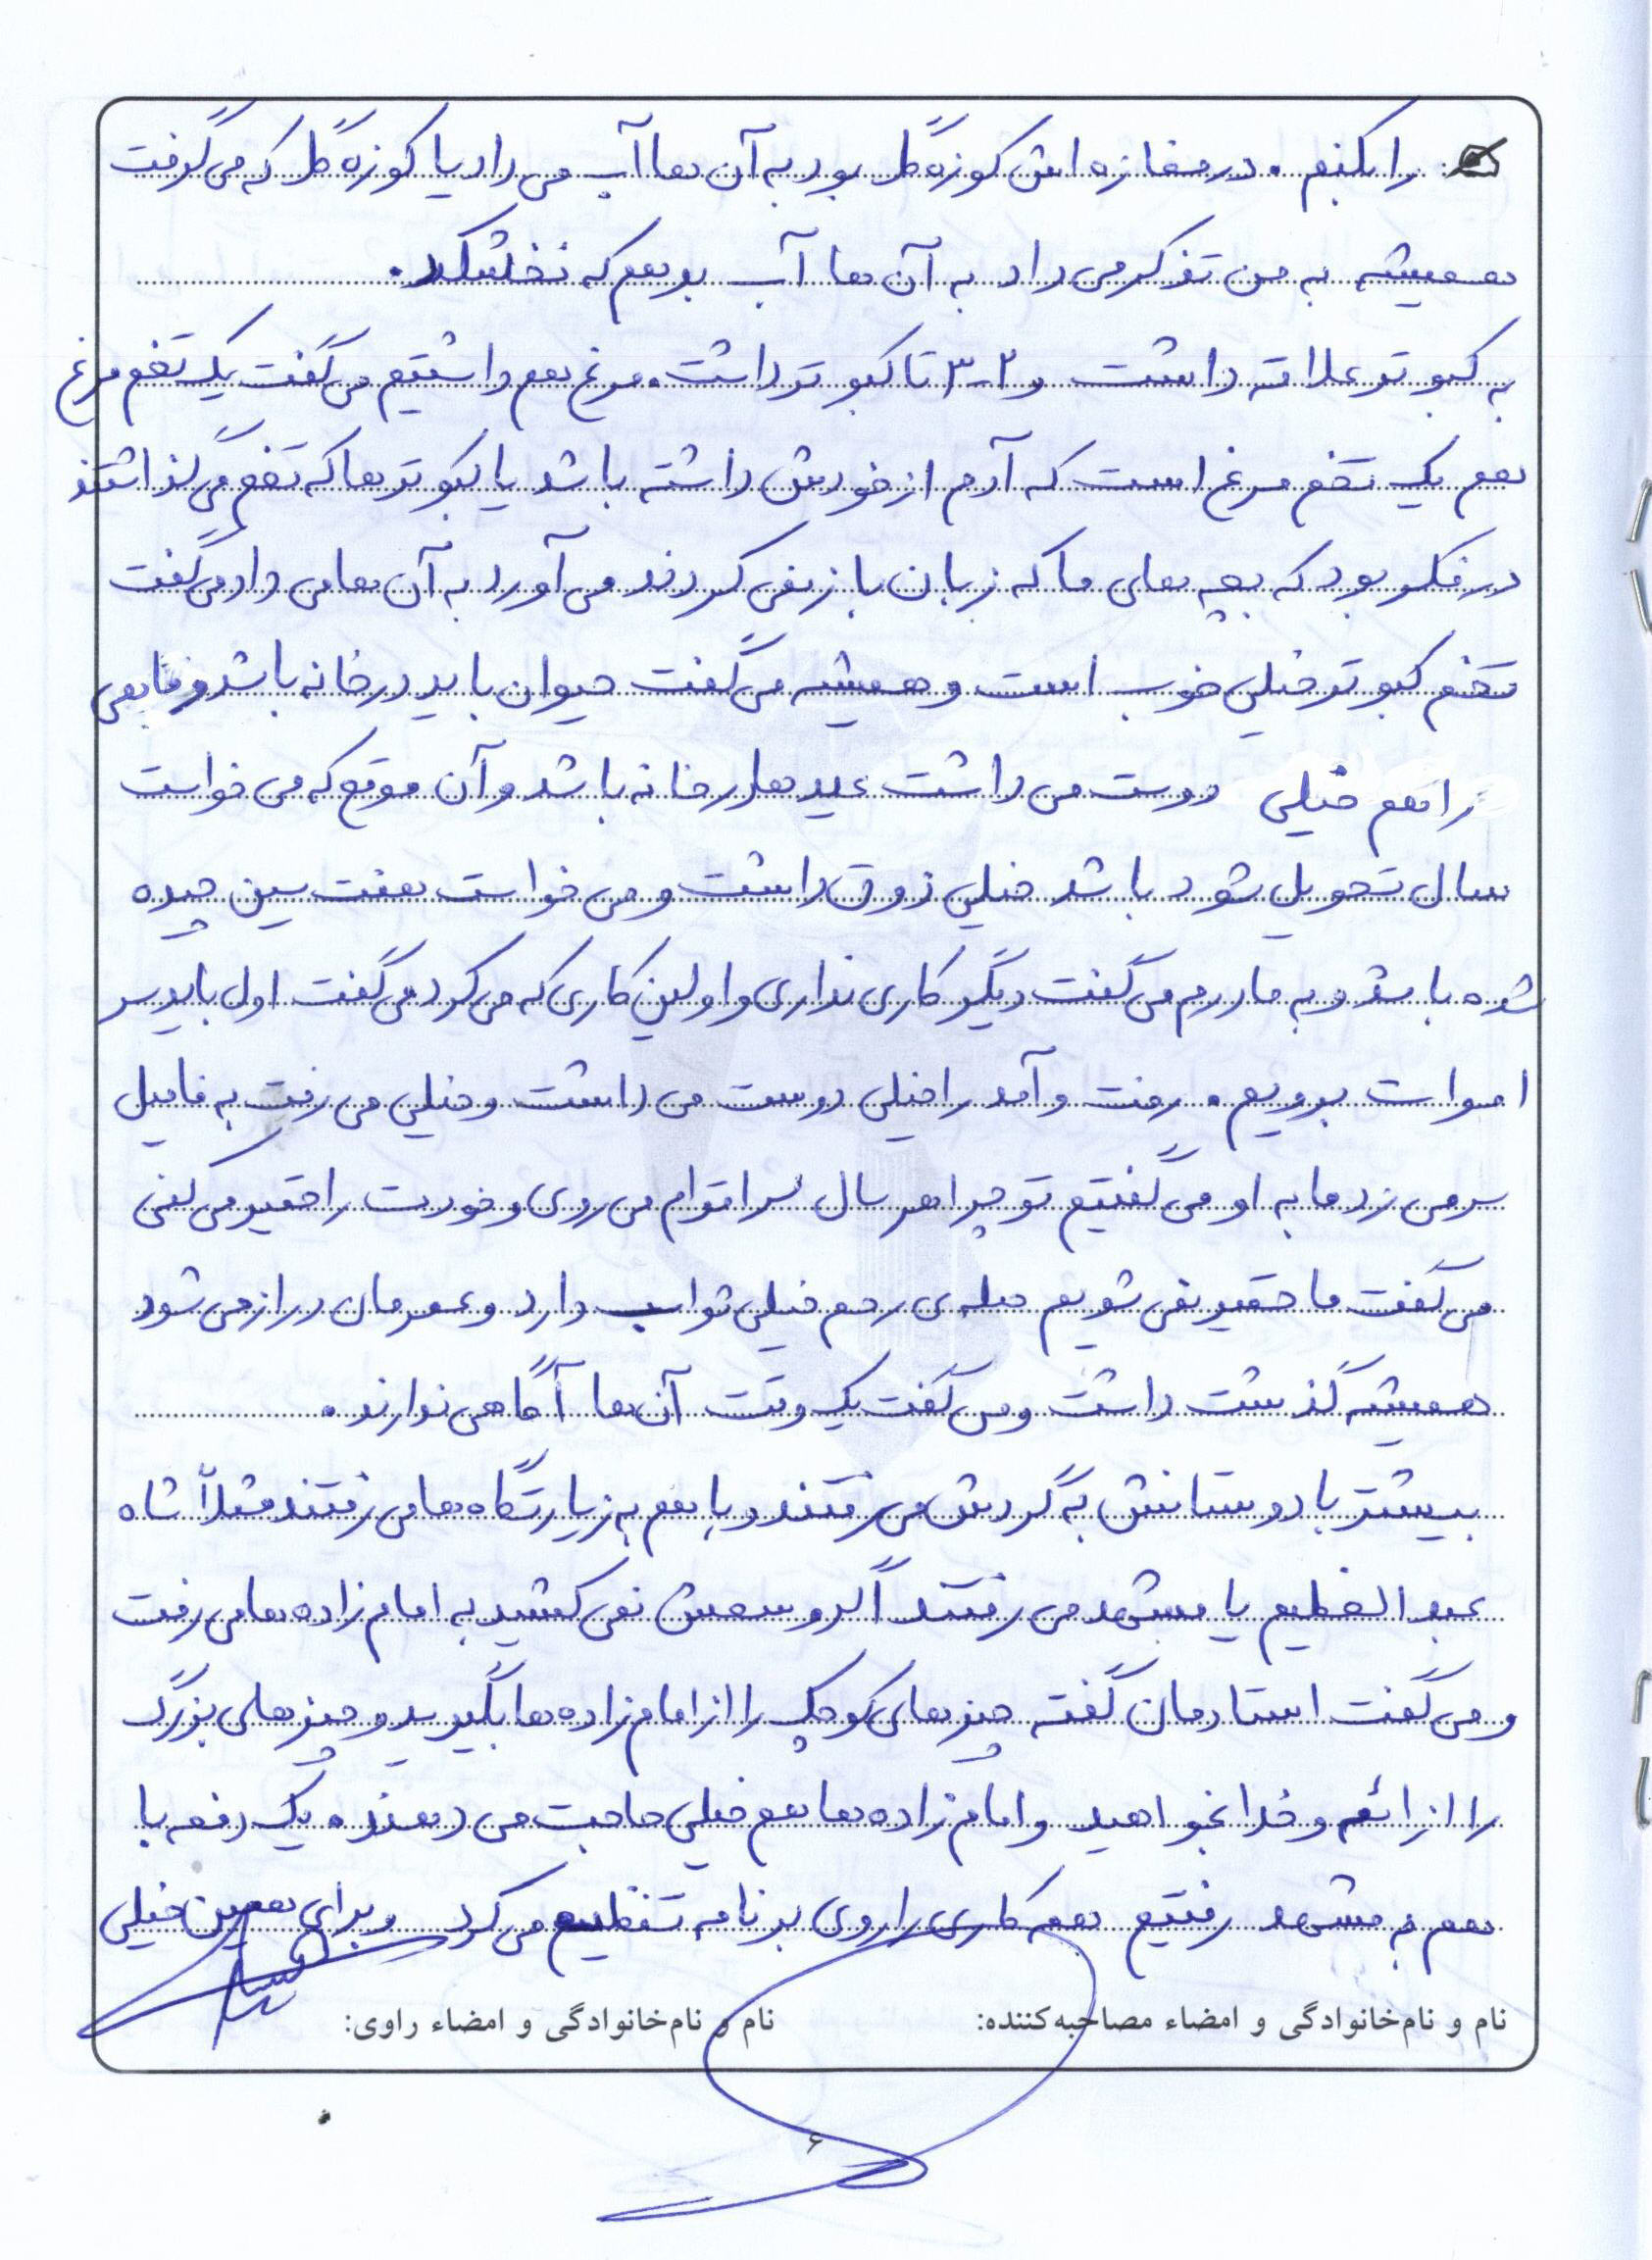 را بکنیم. در مغازه اش کوزه گل بود به آن ها آب می داد یا کوزه گل که می گرفت
همیشه به من تذکر می داد به آن ها آب بدهم که نخشکد.
به کبوتر علاقه داشت و ۲-۳ تا کبوتر داشت. مرغ هم داشتیم می گفت یک تخم مرغ
هم یک تخم مرغ است که آدم از خودش داشته باشد یا کبوترها که تخم می گذاشتند
در فکر بود که بچه های ما که زبان باز نمی کردند می آورد به آن ها می داد می گفت
تخم کبوتر خیلی خوب است و همیشه می گفت حیوان باید در خانه باشد و ماهی
را هم خیلی دوست می داشت عید ها در خانه باشد و آن موقع که می خواست
سال تحویل شود باشد خیلی ذوق داشت و می خواست هفت سین چیده
شده باشد و به مادرم می گفت دیگر کاری نداری و اولین کاری که می کرد می گفت اول باید سر
اموات برویم. رفت و آمد را خیلی دوست می داشت و خیلی می رفت به فامیل
سر می زد ما به او می گفتیم تو چرا هر سال سر اقوام می روی و خودت را حقیر می کنی
می گفت ما حقیر نمی شویم صله ی رحم خیلی ثواب دارد و عمرمان دراز می شود
همیشه گذشت داشت و می گفت یک وقت آن ها آگاهی ندارند.
بیشتر با دوستانش به گردش می رفتند و با هم به زیارتگاه ها می رفتند مثلاً شاه
عبدالعظیم یا مشهد می رفتند اگر وسعش نمی کشید به امام زاده ها می رفت
و می گفت استادمان گفته چیزهای کوچک را از امام زاده ها بگیرید و چیزهای بزرگ
را از ائمه و خدا بخواهید و امام زاده ها هم خیلی حاجت می دهند. یک دفعه با
هم به مشهد رفتیم همه کاری را روی برنامه تنظیم می کرد و برای همین خیلی
نام و نام‌خانوادگی و امضاء مصاحبه‌کننده: نام و نام‌خانوادگی و امضاء راوی:
۶